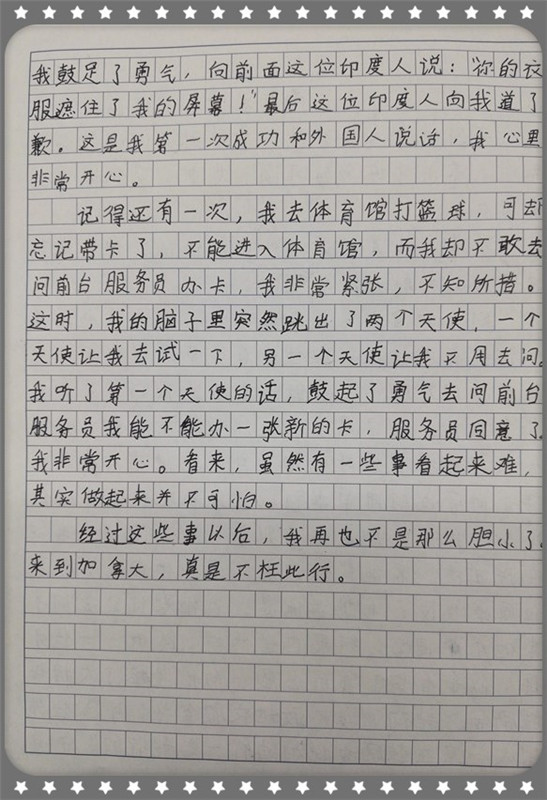 我鼓足了勇气，向前面这位印度人说：“你的衣
服遮住了我的屏幕！”最后这位印度人向我道了
歉。这是我第一次成功和外国人说话，我心里
非常开心。
记得还有一次，我去体育馆打篮球，可却
忘记带卡了，不能进入体育馆，而我却不敢去
问前台服务员办卡，我非常紧张，不知所措。
这时，我的脑子里突然跳出了两个天使，一个
天使让我去试一下，另一个天使让我不用去问。
我听了第一个天使的话，鼓起了勇气去问前台
服务员我能不能办一张新的卡，服务员同意了。
我非常开心。看来，虽然有一些事看起来难，
其实做起来并不可怕。
经过这些事以后，我再也不是那么胆小了。
来到加拿大，真是不枉此行。